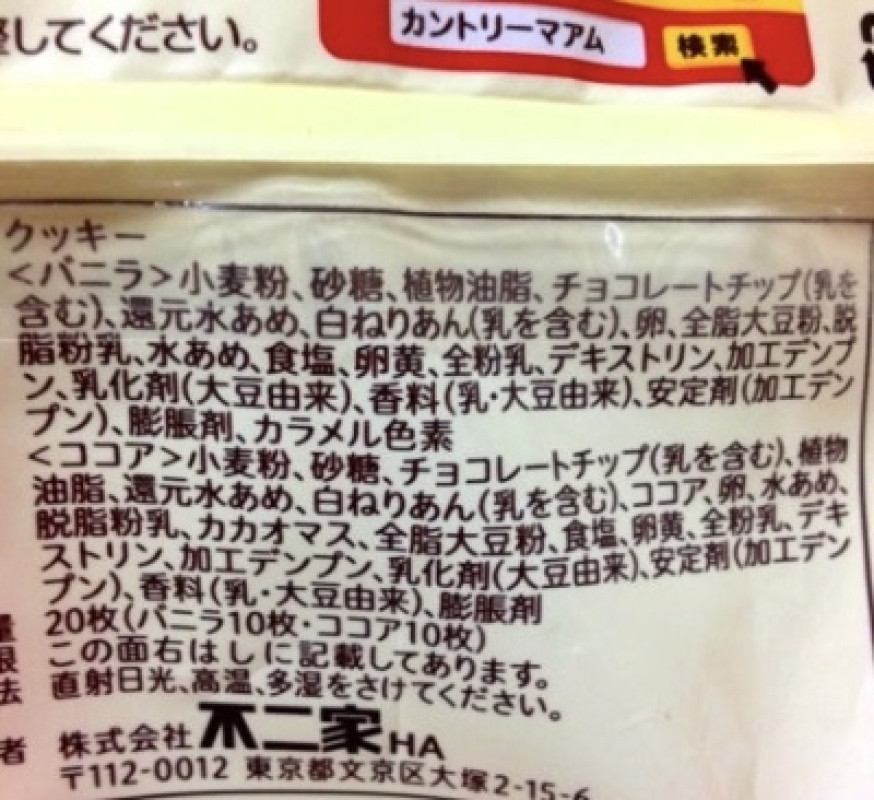 してください。
カントリーマアム 検索
クッキー
<バニラ>小麦粉、砂糖、植物油脂、チョコレートチップ(乳を
含む)、還元水あめ、白ねりあん(乳を含む)、卵、全脂大豆粉、脱
脂粉乳、水あめ、食塩、卵黄、全粉乳、デキストリン、加工デンプ
ン、乳化剤(大豆由来)、香料(乳・大豆由来)、安定剤(加工デン
プン)、膨脹剤、カラメル色素
<ココア>小麦粉、砂糖、チョコレートチップ(乳を含む)、植物
油脂、還元水あめ、白ねりあん(乳を含む)、ココア、卵、水あめ、
脱脂粉乳、カカオマス、全脂大豆粉、食塩、卵黄、全粉乳、デキ
ストリン、加工デンプン、乳化剤(大豆由来)、安定剤(加工デン
プン)、香料(乳・大豆由来)、膨脹剤
量 20枚(バニラ10枚・ココア10枚)
限 この面右はしに記載してあります。
法 直射日光、高温、多湿をさけてください。
者 株式会社不二家HA
〒112-0012 東京都文京区大塚2-15-6